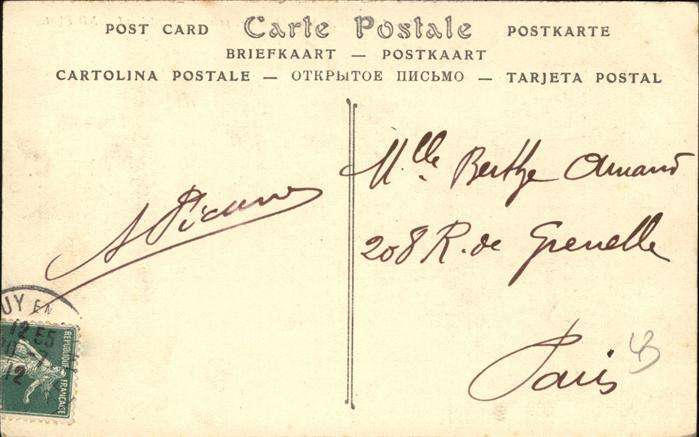 POST CARD Carte Postale POSTKARTE
BRIEFKAART — POSTKAART
CARTOLINA POSTALE — ОТКРЫТОЕ ПИСЬМО — TARJETA POSTAL
Mlle. Berthe Amand
208 R. de Grenelle
Paris
UY EN
12 55
12
REPUBLIQUE FRANÇAISE